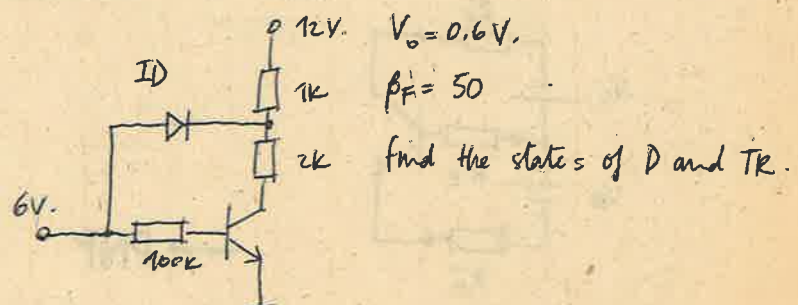 12V. V₀ = 0.6V.
ID
1K βF = 50
2K find the states of D and TR.
6V.
100K